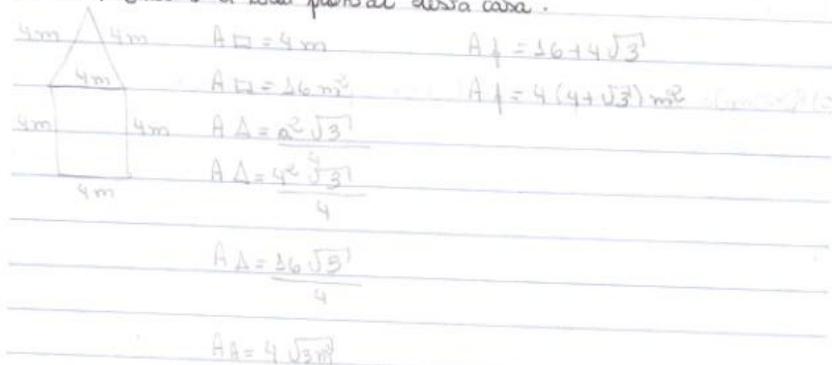 a área frontal dessa casa.
4m 4m
4m
4m 4m
4m
A□ = 4m
A□ = 16 m²
A△ = a²√3
4
A△ = 4²√3
4
A△ = 16√3
4
AA = 4√3m²
Af = 16+4√3
Af = 4(4+√3) m²